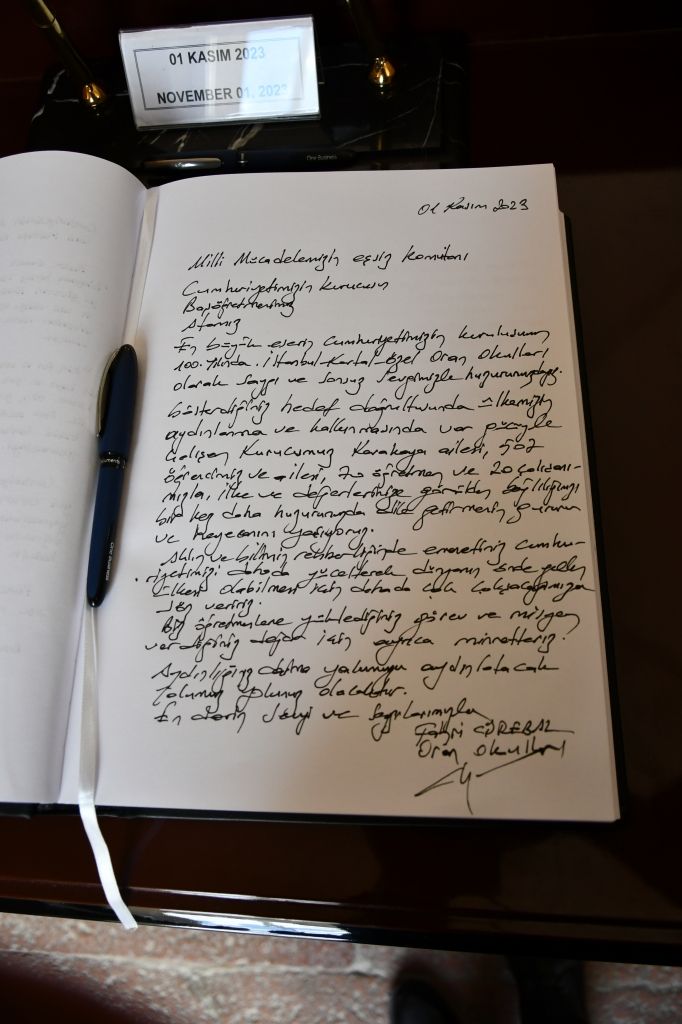 01 KASIM 2023
NOVEMBER 01, 2023
One Business
01 Kasım 2023
Milli Mücadelemizin eşsiz Komutanı
Cumhuriyetimizin Kurucusu
Başöğretmenimiz
Atamız
En büyük eserin Cumhuriyetimizin kuruluşunun
100. Yılında. İstanbul-Kartal Özel Oran Okulları
olarak saygı ve sonsuz sevgimizle huzurunuzdayız.
Gösterdiğiniz hedef doğrultusunda ülkemizin
aydınlanma ve kalkınmasında var gücüyle
çalışan Kurucumuz Karakaya ailesi, 502
öğrencimiz ve ailesi, 70 öğretmen ve 20 çalışanı-
mızla, ilke ve değerlerinize gönülden bağlılığımızı
bir kez daha huzurunuzda dile getirmenin gururunu
ve heyecanını yaşıyoruz.
Aklın ve bilimin rehberliğinde emanetiniz Cumhu-
riyetimizi dahada yücelterek dünyanın önde gelen
ülkesi olabilmesi için dahada çok çalışacağımıza
söz veririz.
Biz öğretmenlere yüklediğiniz görev ve misyon
verdiğiniz değer için ayrıca minnettarız.
Aydınlığınız daima yolumuzu aydınlatacak
Yolunuz yolumuz olacaktır.
En derin sevgi ve saygılarımızla
Oran Okulları